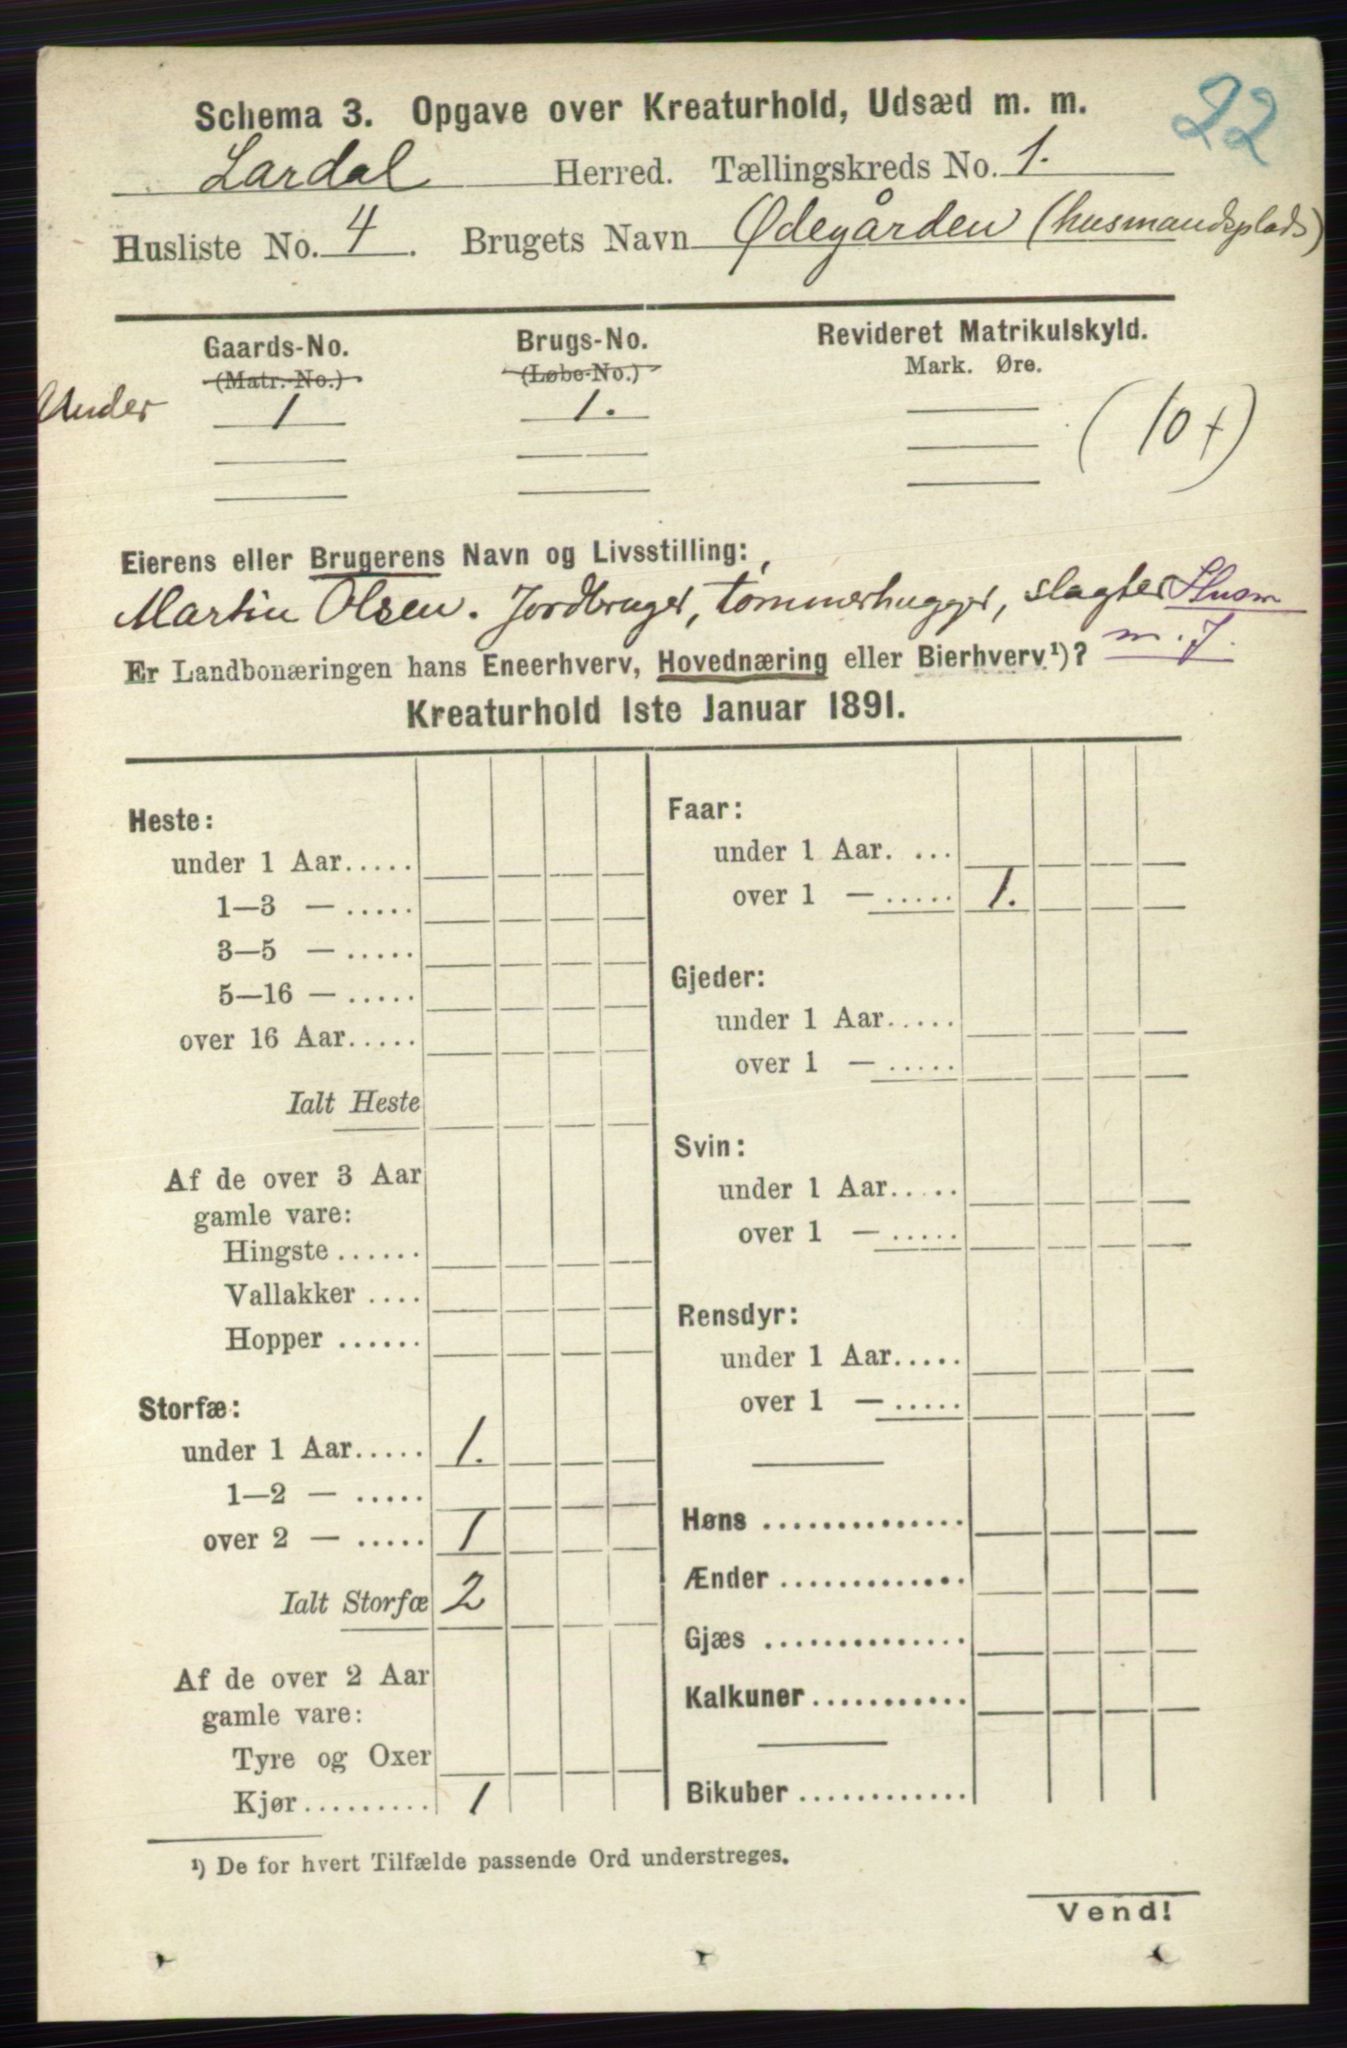 22
Schema 3. Opgave over Kreaturhold, Udsæd m. m.
Lardal Herred. Tællingskreds No. 1.
Husliste No. 4. Brugets Navn Ødegården (husmandsplads)
Gaards-No. Brugs-No. Revideret Matrikulskyld.
(Matr.-No.) (Løbe-No.) Mark. Øre.
Under 1 1. (10 +)
Eierens eller Brugerens Navn og Livsstilling:
Martin Olsen. Jordbruger, tømmerhugger, slagter Husm
m. J.
Er Landbonæringen hans Eneerhverv, Hovednæring eller Bierhverv¹)?
Kreaturhold 1ste Januar 1891.
Heste:
under 1 Aar.....
1—3 — .....
3—5 — .....
5—16 — .....
over 16 Aar.....
Ialt Heste
Af de over 3 Aar
gamle vare:
Hingste ......
Vallakker ....
Hopper ......
Storfæ:
under 1 Aar..... 1.
1—2 — .....
over 2 — ..... 1
Ialt Storfæ 2
Af de over 2 Aar
gamle vare:
Tyre og Oxer
Kjør......... 1
Faar:
under 1 Aar. ...
over 1 — ..... 1.
Gjeder:
under 1 Aar.....
over 1 — .....
Svin:
under 1 Aar.....
over 1 — .....
Rensdyr:
under 1 Aar.....
over 1 — .....
Høns ..............
Ænder .............
Gjæs ..............
Kalkuner...........
Bikuber ............
¹) De for hvert Tilfælde passende Ord understreges.
Vend!